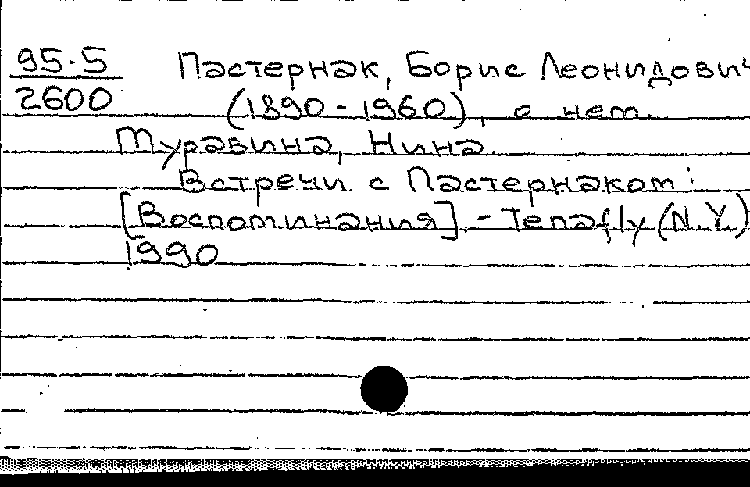 95-5 Пастернак, Борис Леонидович
2600 (1890-1960), о нем.
Муравина, Нина.
Встречи с Пастернаком:
[Воспоминания]. - Tenafly (N.Y.)
1990